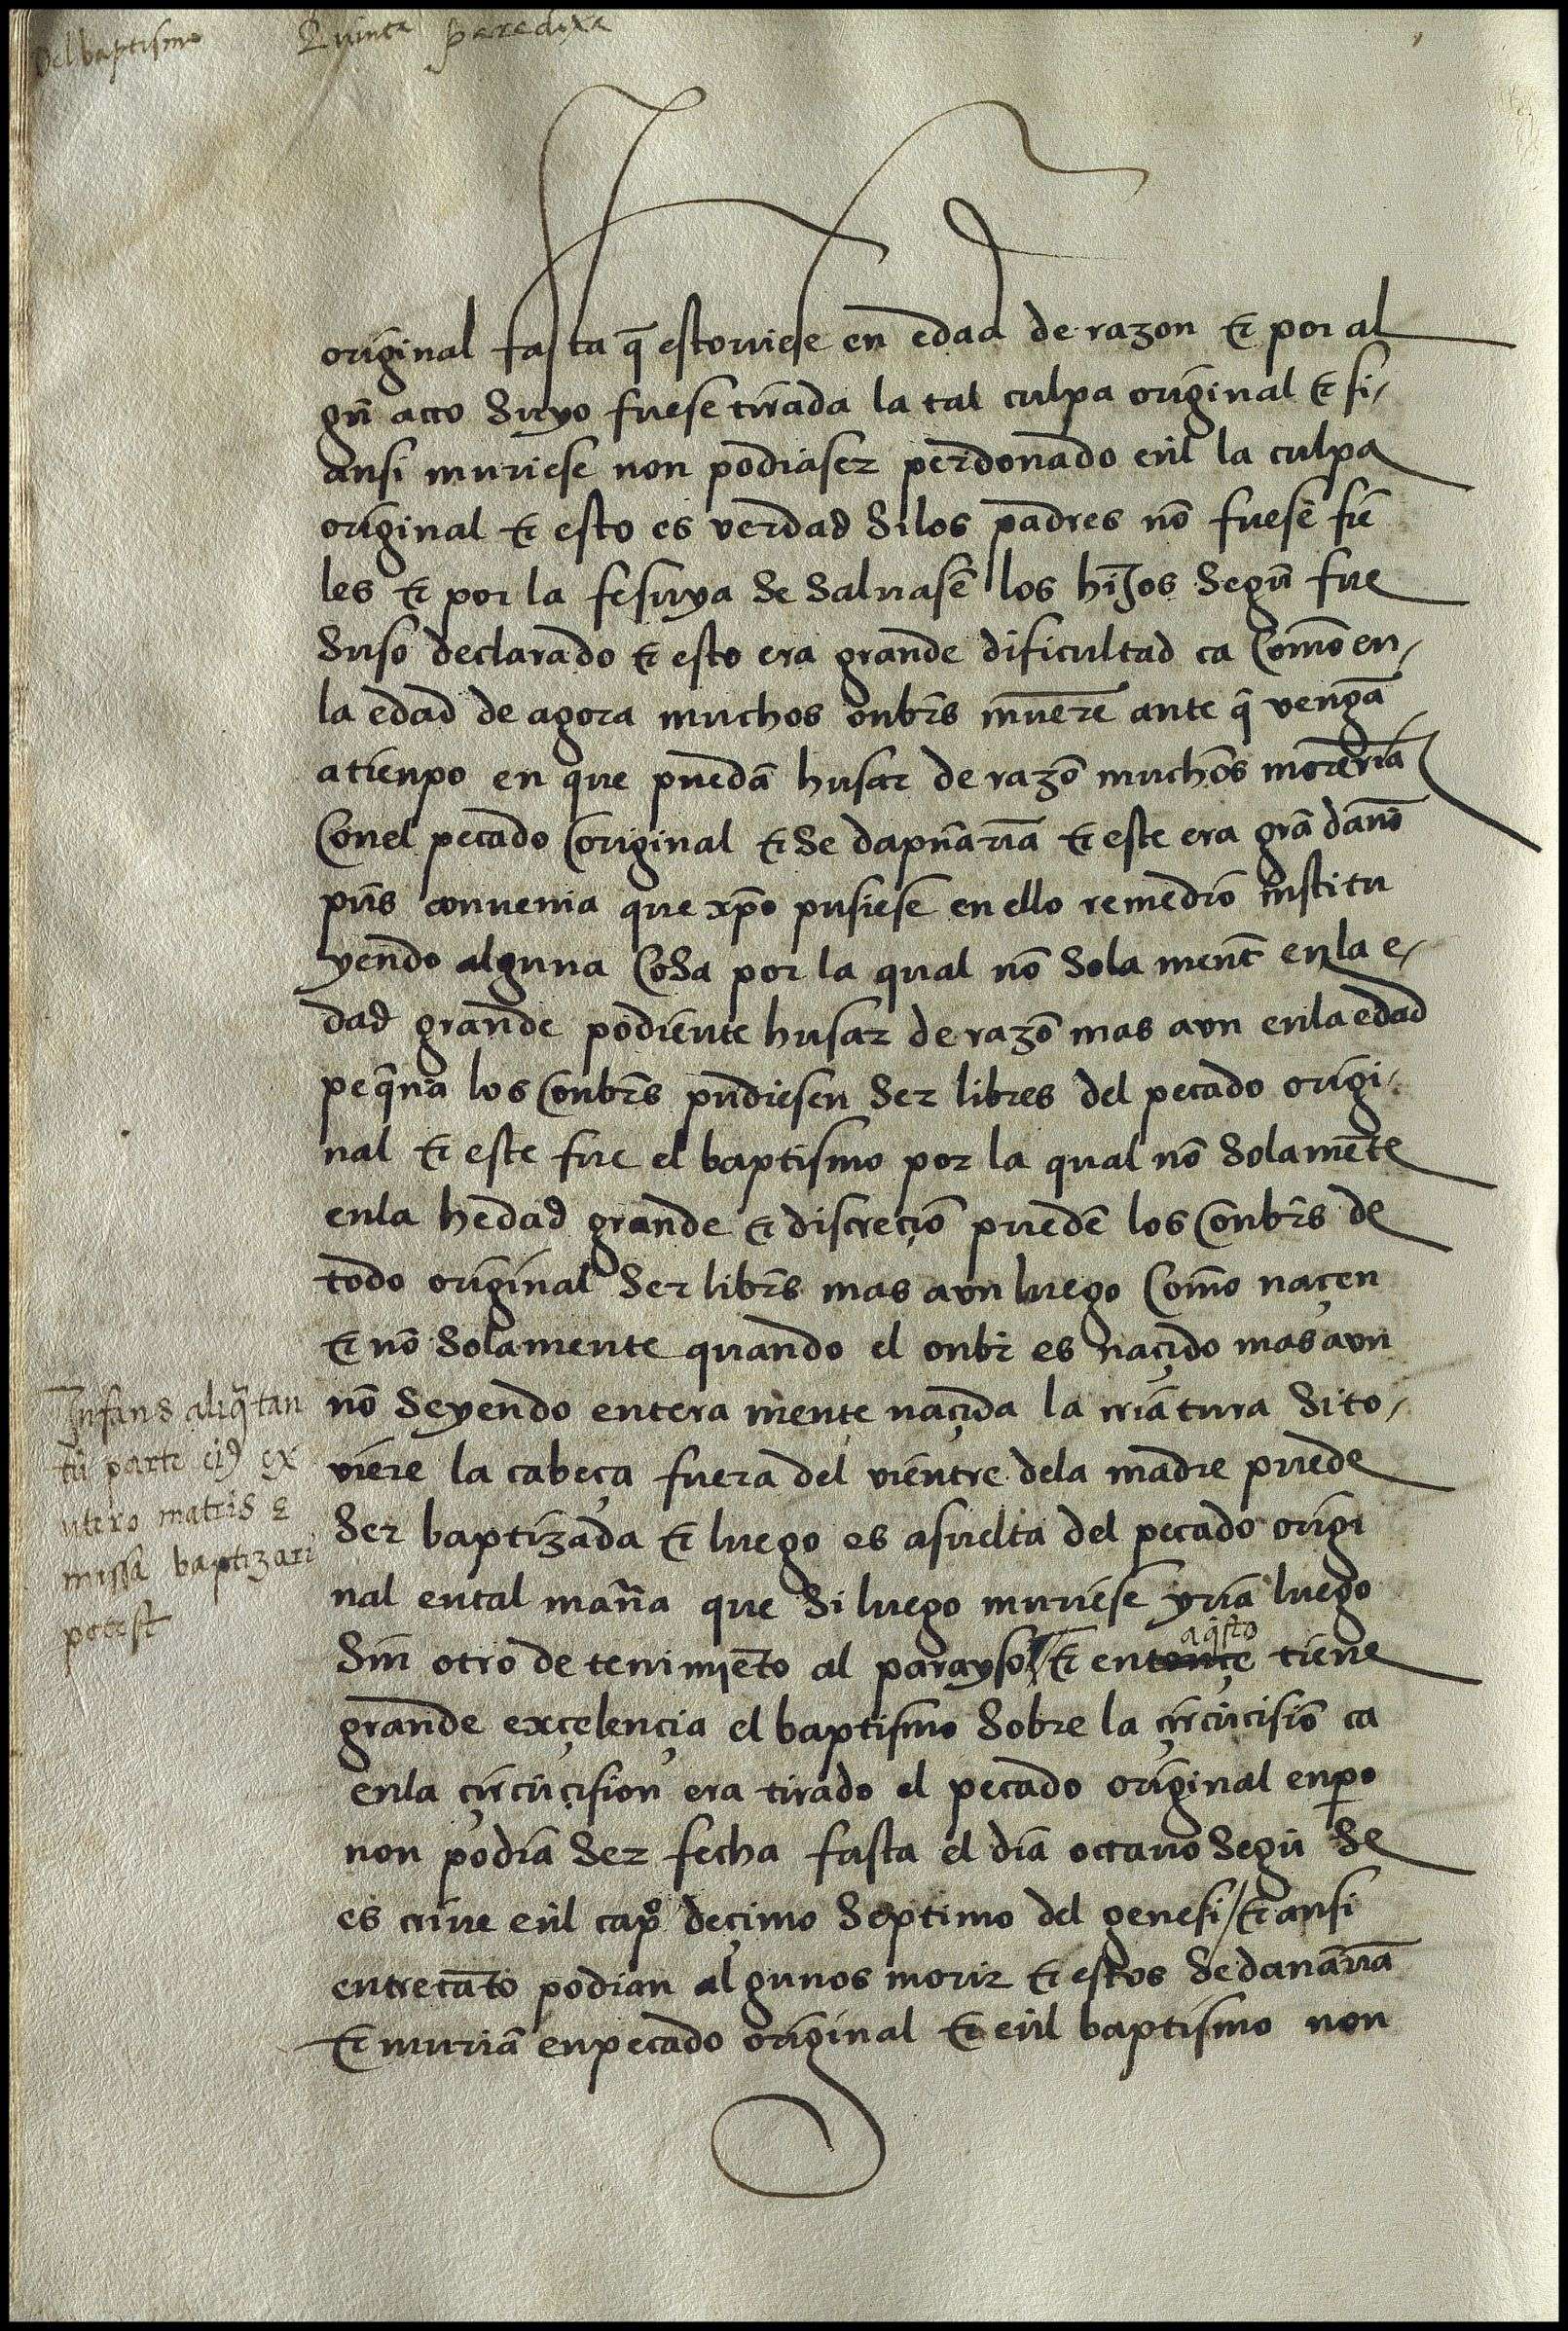 Del baptismo Quinta paradoxa
original fasta q̄ estouiese en edad de razon & por al
gū acto suyo fuese tirada la tal culpa original & si-
ansi muriese non podia ser perdonado enl la culpa
original & esto es verdad si los padres nō fuesē fie
les & por la fe suya se saluasē los hijos segū fue
suso declarado & esto era grande dificultad ca como en-
la edad de agora muchos onbrs muerē ante q̄ vengā
a tienpo en que puedā husar de razō muchos morerriā
con el pecado original & se dapnariā & este era grā dano
pus conuenia que xp̄o pusiese en ello remedio institu
yendo alguna cosa por la qual nō sola ment en la e-
dad grande podiente husar de razō mas avn en la edad
peq̄na los onbrs pudiesen ser libres del pecado origi-
nal & este fue el baptismo por la qual nō solamēte
en la hedad grande & discreçiō puedē los onbrs de
todo original ser librs mas avn luego como naçen
& nō solamente quando el onbr es naçido mas avn
nō seyendo entera mente naçida la criatura si to-
viere la cabeça fuera del vientre de la madre puede
ser baptizada & luego es asuelta del pecado origi
nal en tal maña que si luego muriese yria luego
sin otro detenimiēto al parayso & entonçe aq̄sto tiene
grande exçelençia el baptismo sobre la çircūcisiō ca
en la çircūçision era tirado el pecado original enpo
non podia ser fecha fasta el dia octauo segū se
es criue enl capo deçimo septimo del genesi / & ansi
entretāto podian algunos morir & estos se danāriā
& muriā en pecado original & enl baptismo non
Infans aliq̄tan
tū parte eiꝰ ex
utero matris e
missa baptizari
potest